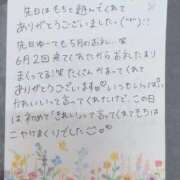 先日はもちと遊んでくれて
ありがとうございました
先日ゆーても5月のおれい
6月2回来てくれたからおれいたまり
まくってる! たくさんかまってくれて
ありがとうございます♡いつもいっぱい
うれしいって言ってくれてたけど、この日
は初めて「きれい」って言ってくれてもちは
ニヤけまくりでした